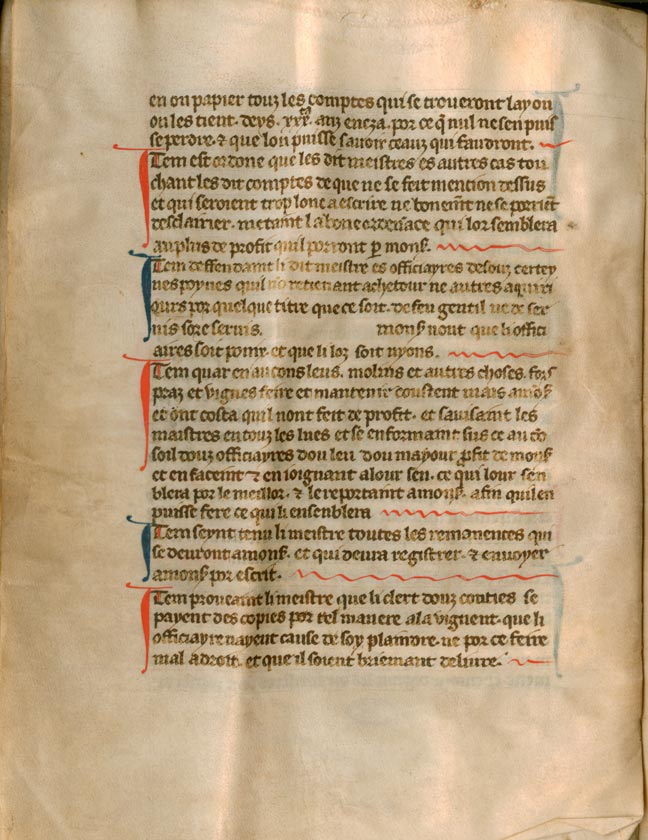 en on papier touz les comptes qui se troveront la y ou
ou les tient. deys. xxx. anz en eza. por ce q̄ nul ne sen puis
se perdre. ⁊ que lon puisse savoir ceauz qui faudront.
Item est ordone que les dit meistres es autres cas tou
chant les dit comptes de que ne se feit mention dessus
et qui seroient trop lonc a escrire ne bonem̄t ne se porriēt
desclairier. metant la bone ordenāce qui lor semblera
au plus de profit quil porront p mons̄.
Item deffendant li dit meistre es officiayres desouz certey
nes poynes quil no retienant achetour ne autres aquiri
ours por quelque titre que ce soit. de feu gentil ne de ser
nis sore sernis. mons̄ nout que li offici
aires soit poiny. et que li lor soit nyons.
Item quar en aucons leus. molins et autres choses. fors
praz et vignes feire et mantenir coustent mais a mons̄
et ont costa quil nont feit de profit. et savisant les
maistres en touz les lues et se enformant sus ce au cō
soil douz officiayres dou leu dou mayour ꝓfit de mons̄
et en faceint ⁊ en ioignant a lour seu. ce qui lour sen
blera por le meillor. ⁊ le reportant a mons̄. afin quil en
puisse fere ce qui li ensenblera
Item seynt tenu li meistre toutes les remanences qui
se devront a mons̄. et qui devra registrer. ⁊ envoyer
a mons̄ por escrit.
Item proveant li meistre que li clert douz conties se
payent des copies por tel maniere a la vignent. que li
officiayre nayent cause de soy plaindre. ne por ce feire
mal a droit. et que il soient briemant delivre.